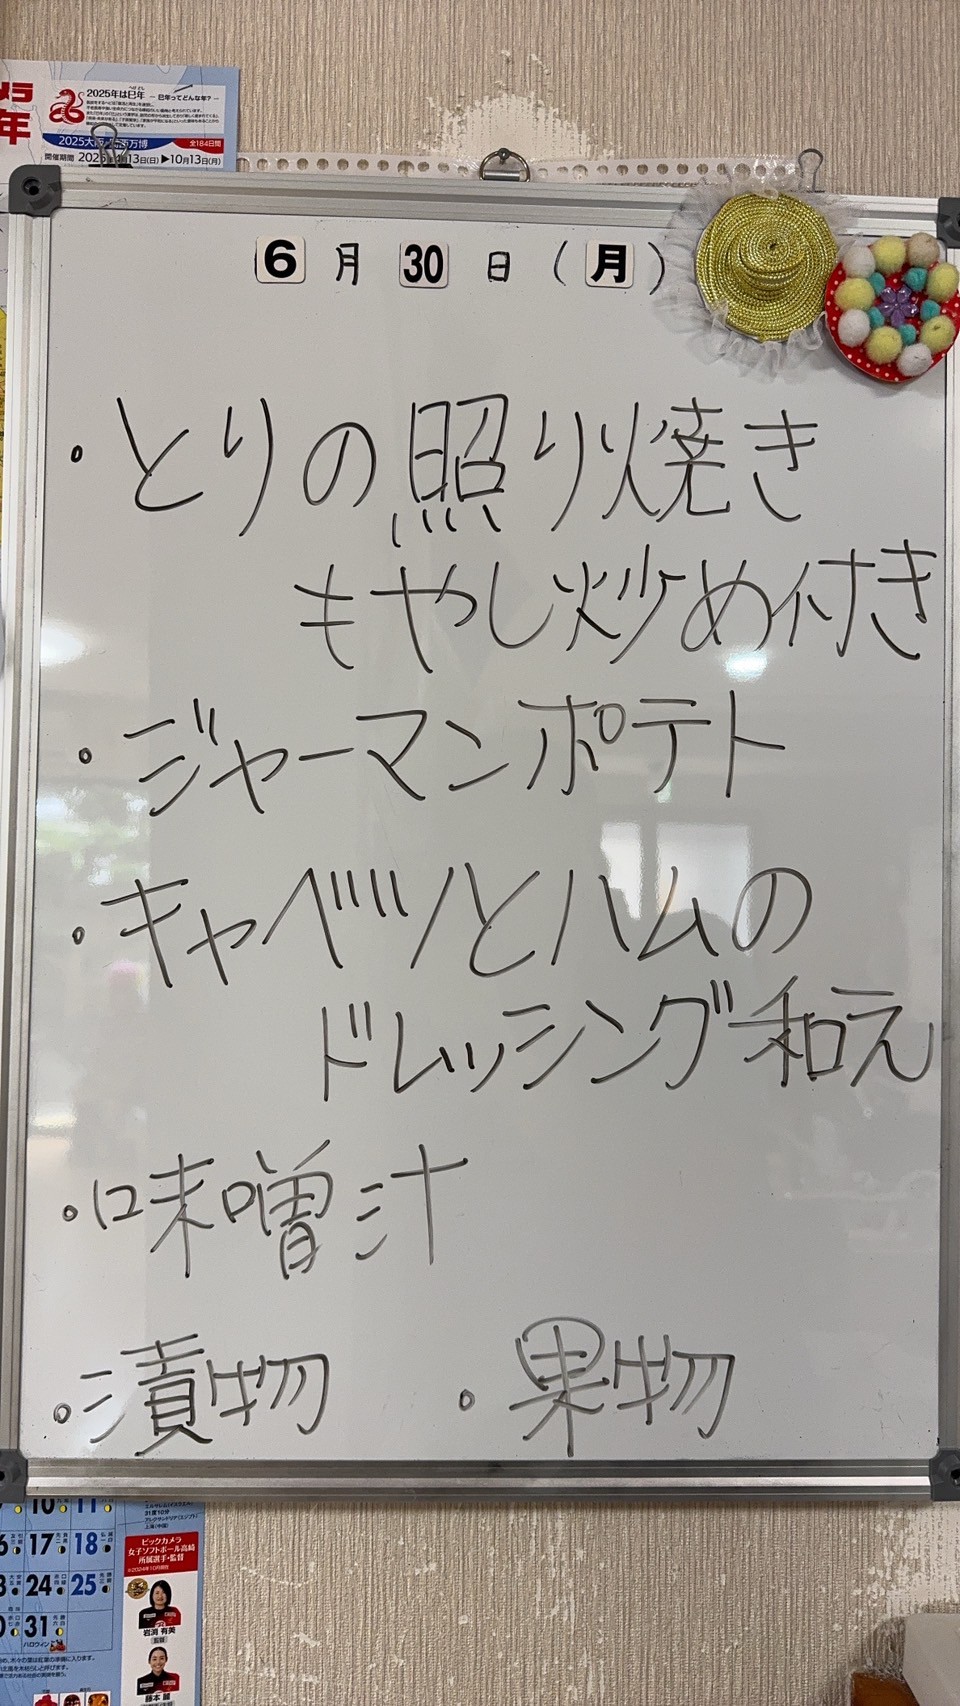 2025年は巳年
巳年ってどんな年?
2025大阪
万博
全184日間
開催期間
13日(日)▶10月13日(月)
年
6月30日(月)
・とりの照り焼き
もやし炒め付き
・ジャーマンポテト
・キャベツとハムの
ドレッシング和え
・味噌汁
・漬物 ・果物
10 11
17 18
24 25
31
ハロウィン
ビックカメラ
女子ソフトボール高崎
所属選手・監督
岩渕 有美
監督
藤本 麗